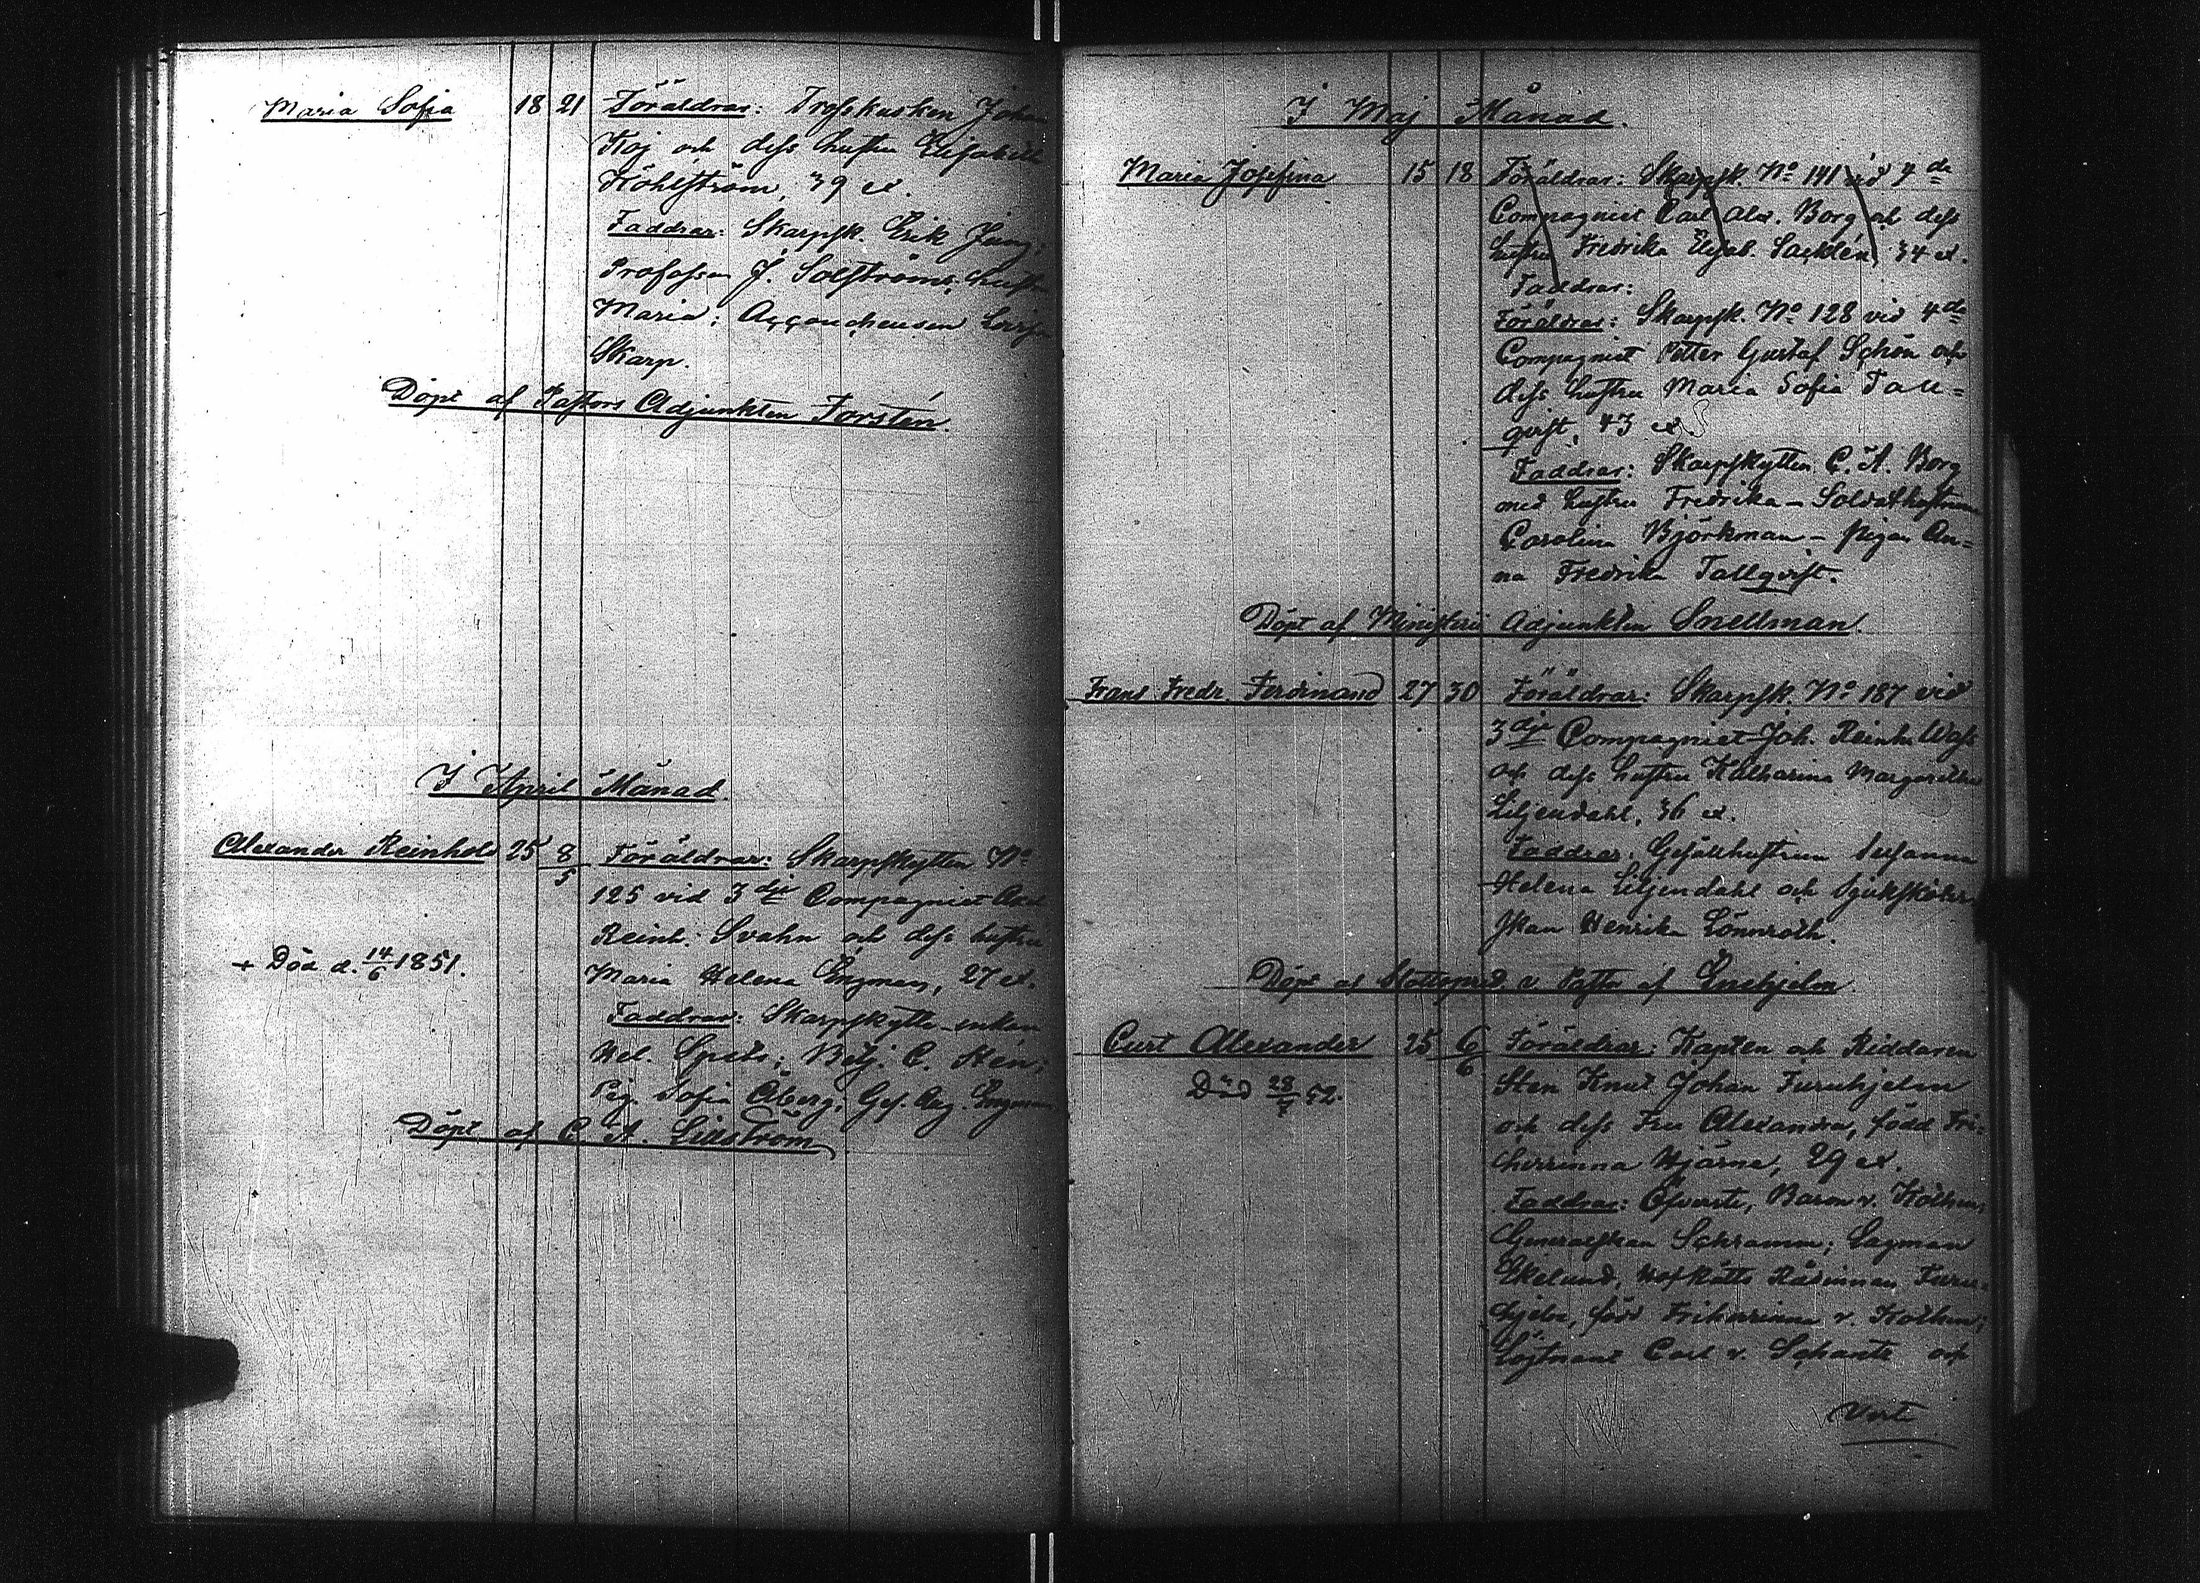 Maria Sofia 18 21 Föräldrar: Trosskusken Johan
Koj och dess hustru Elisabeth
Höhlström, 39 et.
Faddrar: Skarpsk. Erik Jung;
Profossen J. Solströms hustr
Maria; Accoucheusen Lovisa
Skarp.
Döpt af Pastors Adjunkten Forstén.
I April Månad.
Alexander Reinhold 25 8/5 Föräldrar: Skarpskytten No
125 vid 3dje Compagniet Axel
Reinh. Svahn och dess hustru
+ Död d. 14/6 1851.
Maria Helena Engman, 27 et.
Faddrar: Skarpskytte-enkan
Hel. Spets; Betj. C. Hén;
Pig. Sofia Åberg; Ges. Aug. Engman
Döpt af C. A. Lindström
I Maj Månad.
Maria Josefina 15 18 Föräldrar: Skarpsk. No 141 vid 4de
Compagniet Carl Alex. Borg och dess
hustru Fredrika Elisab. Sacklén, 34 et.
Faddrar:
Föräldrar: Skarpsk. No 128 vid 4de
Compagniet Petter Gustaf Schön och
dess hustru Maria Sofia Tall=
qvist, 43 et.
Faddrar: Skarpskytten C. A. Borg
med hustru Fredrika – Soldathustrun
Carolina Björkman – pigan An=
na Fredrika Tallqvist.
Döpt af Ministerii Adjunkten Snellman.
Frans Fredr. Ferdinand 27 30 Föräldrar: Skarpsk. No 187 vid
3dje Compagniet Joh. Reinh. Wass
och dess hustru Katharina Margaretha
Liljendahl, 36 et.
Faddrar: Gesällhustrun Susanna
Helena Liljendahl och Sjuksköter=
skan Henrika Lönnroth.
Döpt af Slottspred. v. Pastor af Enehjelm
Curt Alexander 25 6/6 Föräldrar: Kapten och Riddaren
Sten Knut Johan Furuhjelm
Död 28/7 52.
och dess Fru Alexandra, född Fri=
herrinna Hjärne, 29 et.
Faddrar: Öfverste, Baron v. Kothen;
Generalskan Schramm; Lagman
Ekelund, Hofrätts Rådinnan Furu=
hjelm, född Friherinna v. Kothen;
Löjtnant Carl v. Schantz och
Vert.